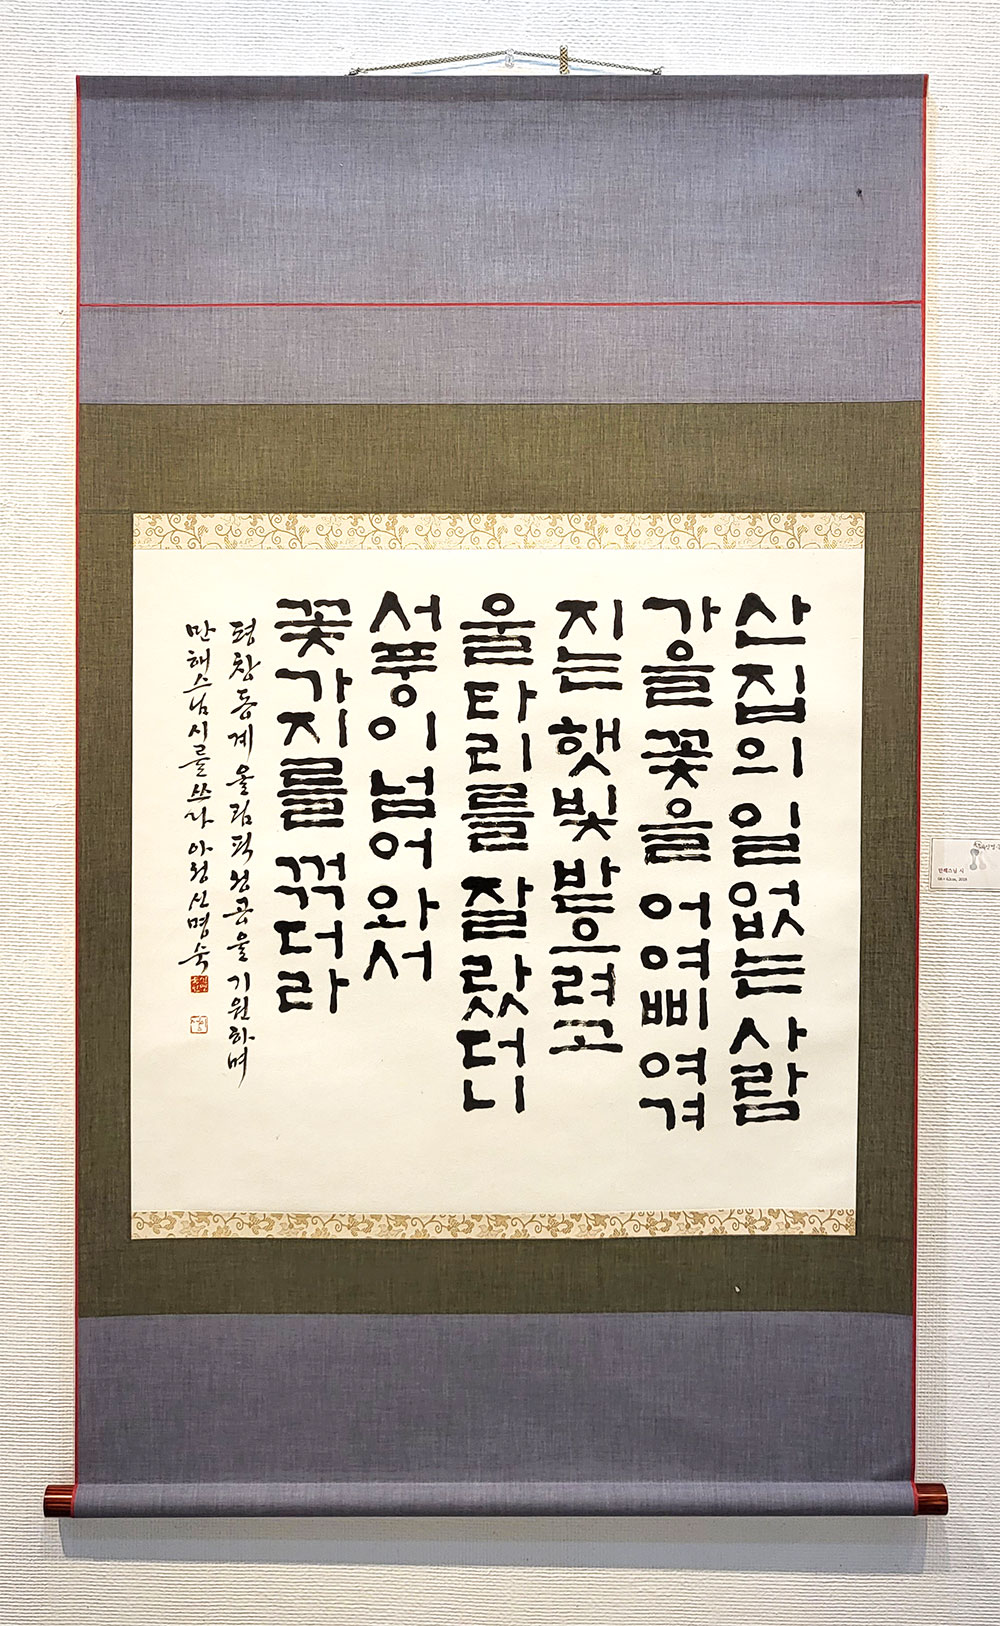 산집의 일 없는 사람
가을 꽃을 어여삐 여겨
지는 햇빛 받으려고
울타리를 잘랐더니
서풍이 넘어와서
꽃가지를 꺾더라
평창동계올림픽성공을기원하며
만해스님시를쓰다 아정신명숙
만해스님 시